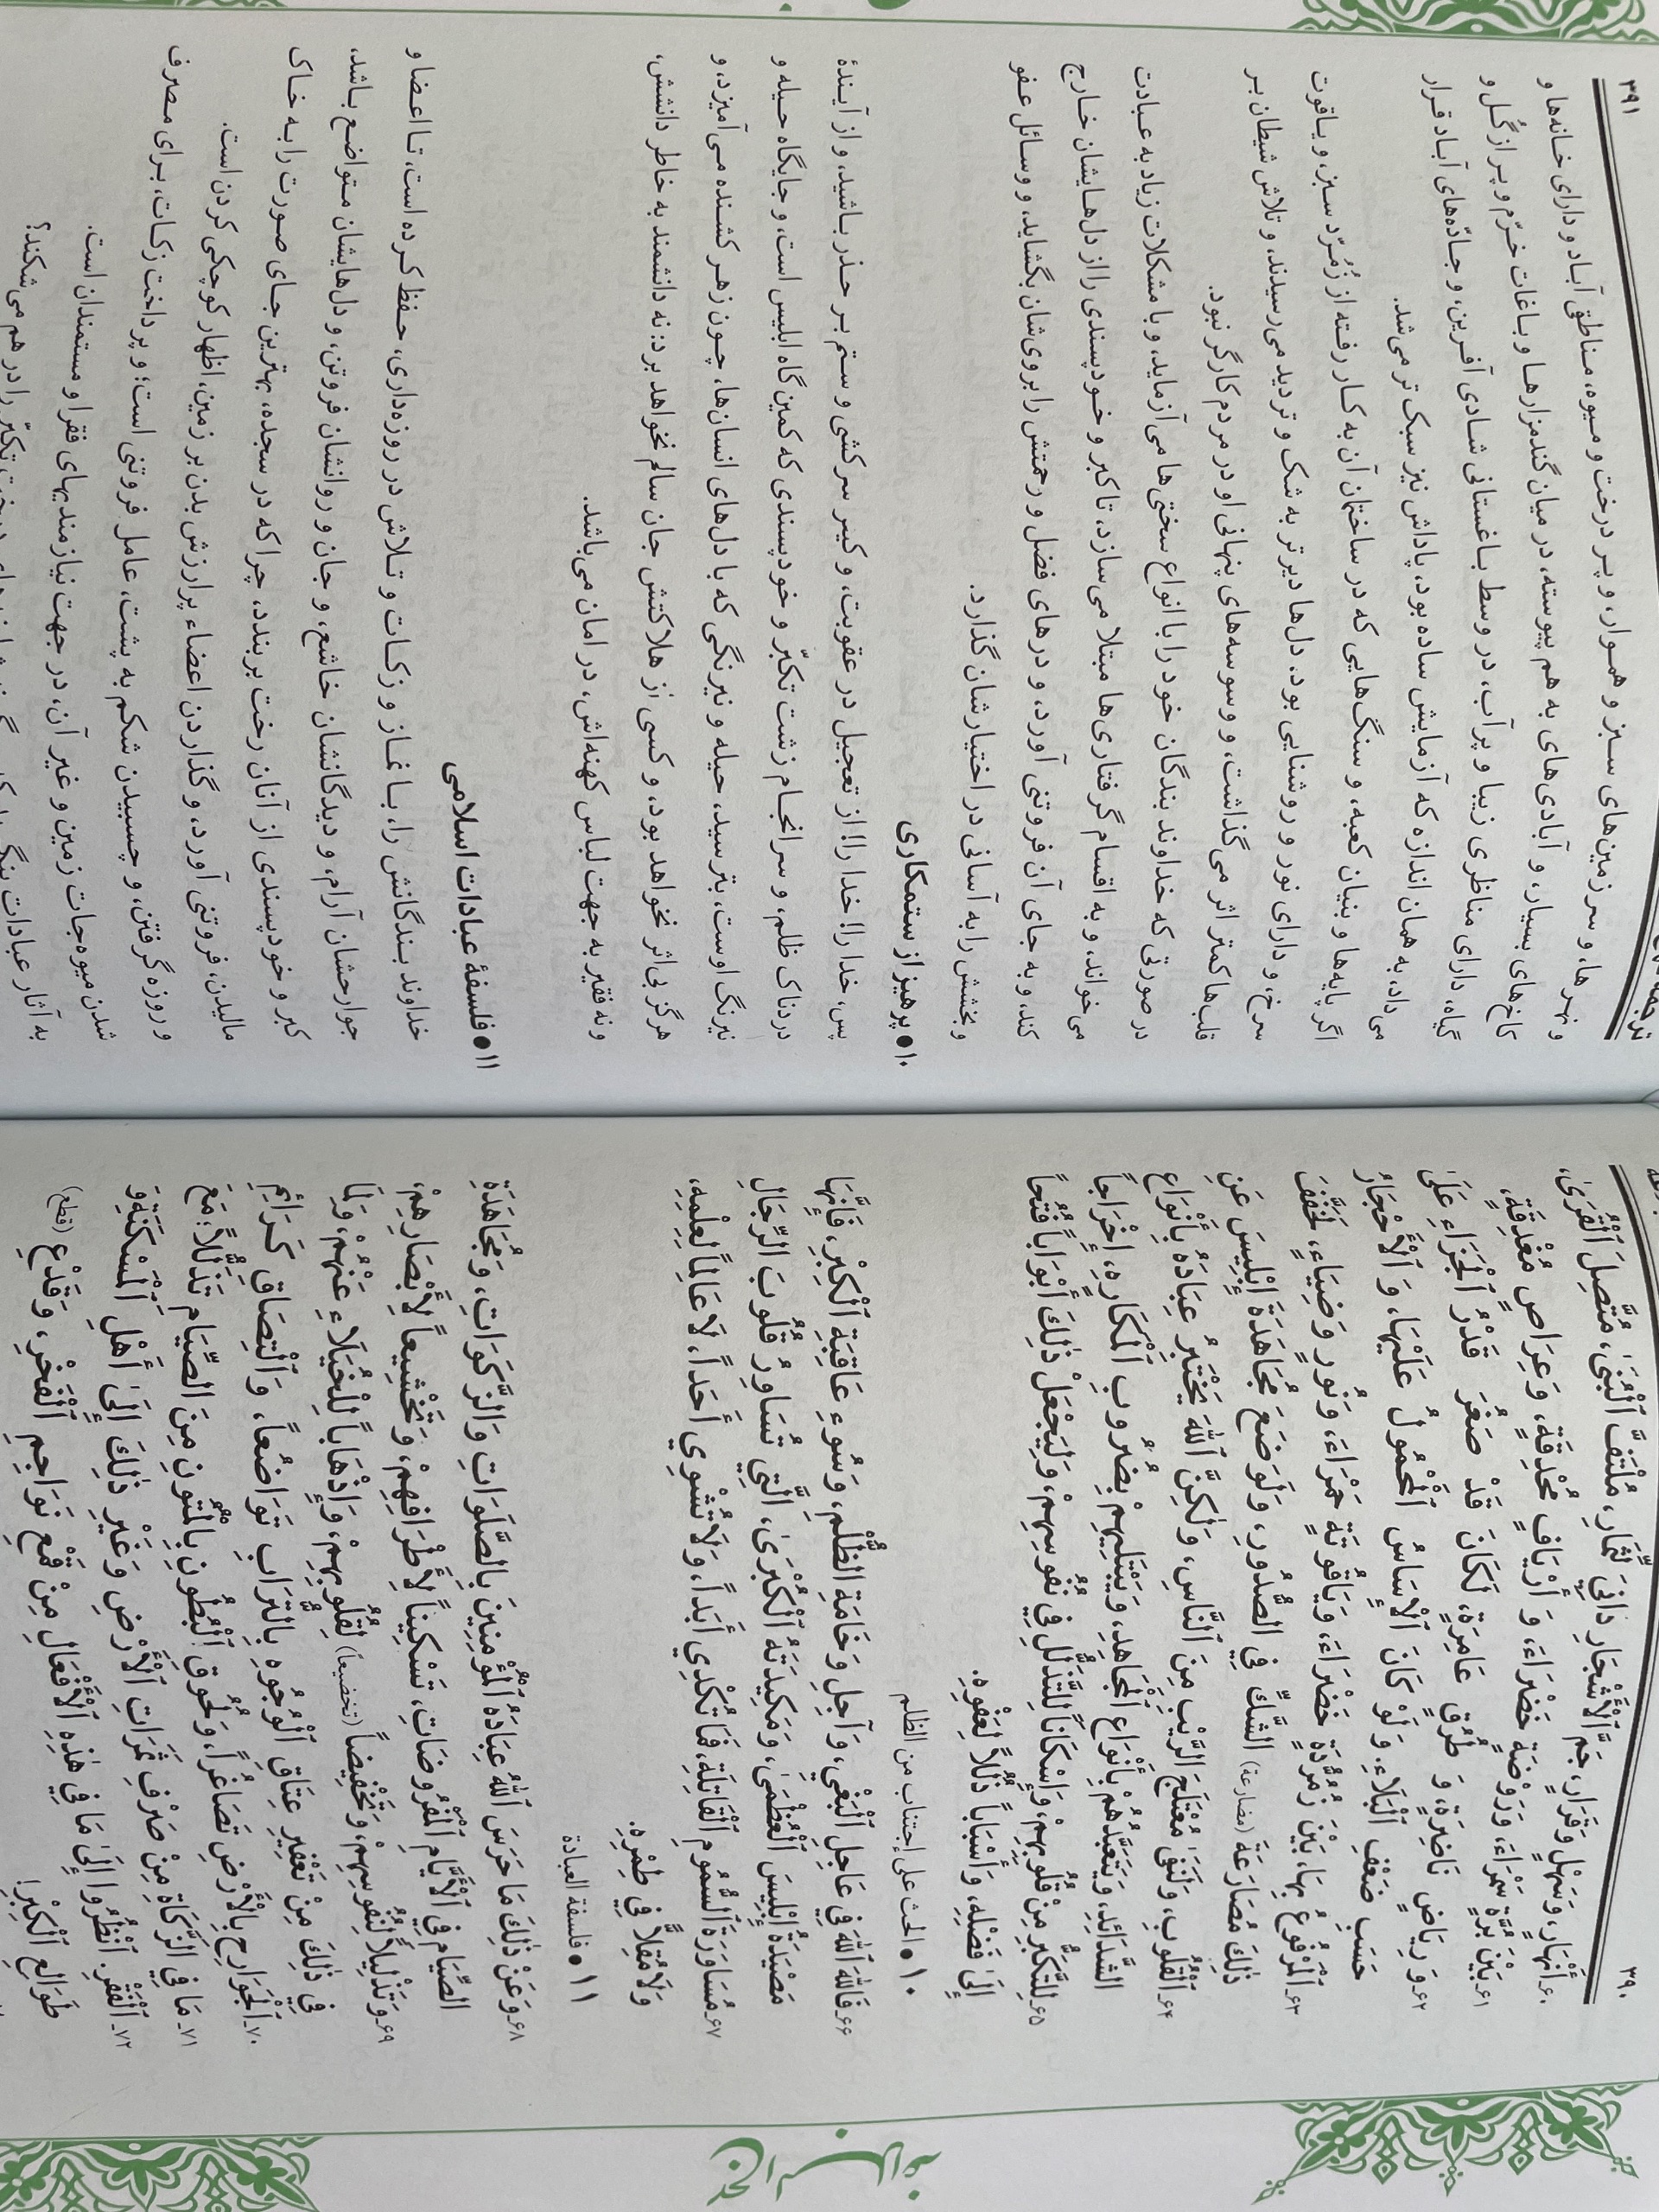 ۳۹۰
۶۰ـ أَنْهَارٍ، وَسَهْلٍ وَقَرَارٍ، جَمَّ ٱلْأَشْجَارِ دَانِيَ ٱلثِّمَارِ، مُلْتَفَّ ٱلْبُنَىٰ، مُتَّصِلَ ٱلْقُرَىٰ،
۶۱ـ بَيْنَ بُرَّةٍ سَمْرَاءَ، وَرَوْضَةٍ خَضْرَاءَ، وَ أَرْيَافٍ مُحْدِقَةٍ، وَعِرَاصٍ مُغْدِقَةٍ،
۶۲ـ وَ رِيَاضٍ نَاضِرَةٍ، وَ طُرُقٍ عَامِرَةٍ، لَكَانَ قَدْ صَغُرَ قَدْرُ ٱلْجَزَاءِ عَلَىٰ
حَسَبِ ضَعْفِ ٱلْبَلَاءِ. وَ لَوْ كَانَ ٱلْإِسَاسُ ٱلْمَحْمُولُ عَلَيْهَا، وَ ٱلْأَحْجَارُ
۶۳ـ ٱلْمَرْفُوعُ بِهَا، بَيْنَ زُمُرُّدَةٍ خَضْرَاءَ، وَ يَاقُوتَةٍ حَمْرَاءَ، وَنُورٍ وَ ضِيَاءٍ، لَخَفَّفَ
ذٰلِكَ مُصَارَعَةَ (مضارعة) الشَّكِّ فِي الصُّدُورِ، وَلَوَضَعَ مُجَاهَدَةَ إِبْلِيسَ عَنِ
۶۴ـ ٱلْقُلُوبِ، وَلَنَفَىٰ مُعْتَلَجَ الرَّيْبِ مِنَ ٱلنَّاسِ، وَلٰكِنَّ ٱللّٰهَ يَخْتَبِرُ عِبَادَهُ بِأَنْوَاعِ
الشَّدَائِدِ، وَيَتَعَبَّدُهُمْ بِأَنْوَاعِ ٱلْمَجَاهِدِ، وَيَبْتَلِيهِمْ بِضُرُوبِ ٱلْمَكَارِهِ، إِخْرَاجاً
۶۵ـ لِلتَّكَبُّرِ مِنْ قُلُوبِهِمْ، وَإِسْكَاناً لِلتَّذَلُّلِ فِي نُفُوسِهِمْ، وَلِيَجْعَلْ ذٰلِكَ أَبْوَاباً فُتُحاً
إِلَىٰ فَضْلِهِ، وَأَسْبَاباً ذُلُلاً لِعَفْوِهِ.
۱۰ ● الحث علی اجتناب من الظلم
۶۶ـ فَاللّٰهَ ٱللّٰهَ فِي عَاجِلِ ٱلْبَغْيِ، وَآجِلِ وَخَامَةِ الظُّلْمِ، وَسُوءِ عَاقِبَةِ ٱلْكِبْرِ، فَإِنَّهَا
مَصْيَدَةُ إِبْلِيسَ ٱلْعُظْمَىٰ، وَمَكِيدَتُهُ ٱلْكُبْرَىٰ، الَّتِي تُسَاوِرُ قُلُوبَ الرِّجَالِ
۶۷ـ مُسَاوَرَةَ السُّمُومِ ٱلْقَاتِلَةِ، فَمَا تُكْدِي أَبَداً، وَلَا تُشْوِي أَحَداً، لَا عَالِماً لِعِلْمِهِ،
وَلَا مُقِلّاً فِي طِمْرِهِ.
۱۱ ● فلسفة العبادة
۶۸ـ وَعَنْ ذٰلِكَ مَا حَرَسَ ٱللّٰهُ عِبَادَهُ ٱلْمُؤْمِنِينَ بِالصَّلَوَاتِ وَالزَّكَوَاتِ، وَمُجَاهَدَةِ
الصِّيَامِ فِي ٱلْأَيَّامِ ٱلْمَفْرُوضَاتِ، تَسْكِيناً لِأَطْرَافِهِمْ، وَتَخْشِيعاً لِأَبْصَارِهِمْ،
۶۹ـ وَتَذْلِيلاً لِنُفُوسِهِمْ، وَتَخْفِيضاً (تخضيعاً) لِقُلُوبِهِمْ، وَإِذْهَاباً لِلْخُيَلَاءِ عَنْهُمْ، وَلِمَا
فِي ذٰلِكَ مِنْ تَعْفِيرِ عِتَاقِ ٱلْوُجُوهِ بِالتُّرَابِ تَوَاضُعاً، وَٱلْتِصَاقِ كَرَائِمِ
۷۰ـ ٱلْجَوَارِحِ بِالْأَرْضِ تَصَاغُراً، وَلُحُوقِ ٱلْبُطُونِ بِالْمُتُونِ مِنَ الصِّيَامِ تَذَلُّلاً؛ مَعَ
۷۱ـ مَا فِي الزَّكَاةِ مِنْ صَرْفِ ثَمَرَاتِ ٱلْأَرْضِ وَغَيْرِ ذٰلِكَ إِلَىٰ أَهْلِ ٱلْمَسْكَنَةِ وَ
۷۲ـ ٱلْفَقْرِ. ٱنْظُرُوا إِلَىٰ مَا فِي هٰذِهِ ٱلْأَفْعَالِ مِنْ قَمْعِ نَوَاجِمِ ٱلْفَخْرِ، وَقَدْعِ (قطع)
طَوَالِعِ ٱلْكِبْرِ!
نهج البلاغه
۳۹۱
و نهرها، و سرزمین‌های سبز و هموار، و پر درخت و میوه، مناطقی آباد و دارای خانه‌ها و
کاخ‌های بسیار، و آبادی‌های به هم پیوسته، در میان گندمزارها و باغات خرّم و پر از گُل و
گیاه، دارای مناظری زیبا و پر آب، در وسط باغستانی شادی آفرین، و جادّه‌های آباد قرار
می‌داد، به همان اندازه که آزمایش ساده بود، پاداش نیز سبک‌تر می‌شد.
اگر پایه‌ها و بنیان کعبه، و سنگ‌هایی که در ساختمان آن به کار رفته از زُمُرّد سبز، و یاقوت
سرخ، و دارای نور و روشنایی بود، دل‌ها دیرتر به شک و تردید می‌رسیدند، و تلاش شیطان بر
قلب‌ها کمتر اثر می‌گذاشت، و وسوسه‌های پنهانی او در مردم کارگر نبود.
در صورتی که خداوند بندگان خود را با انواع سختی‌ها می‌آزماید، و با مشکلات زیاد به عبادت
می‌خواند، و به اقسام گرفتاری‌ها مبتلا می‌سازد، تا کبر و خودپسندی را از دل‌هایشان خارج
کند، و به جای آن فروتنی آورد، و درهای فضل و رحمتش را بروی‌شان بگشاید، و وسائل عفو
و بخشش را به آسانی در اختیارشان گذارد.
۱۰ ● پرهیز از ستمکاری
پس، خدا را! خدا را! از تعجیل در عقوبت، و کیفر سرکشی و ستم بر حذر باشید، و از آیندهٔ
دردناک ظلم، و سرانجام زشت تکبّر و خودپسندی که کمین گاه ابلیس است، و جایگاه حیله و
نیرنگ اوست، بترسید، حیله و نیرنگی که با دل‌های انسان‌ها، چون زهر کشنده می‌آمیزد، و
هرگز بی‌اثر نخواهد بود، و کسی از هلاکتش جان سالم نخواهد برد: نه دانشمند به خاطر دانشش،
و نه فقیر به جهت لباس کهنه‌اش، در امان می‌باشد.
۱۱ ● فلسفهٔ عبادات اسلامی
خداوند بندگانش را، با نماز و زکات و تلاش در روزه‌داری، حفظ کرده است، تا اعضا و
جوارحشان آرام، و دیدگانشان خاشع، و جان و روانشان فروتن، و دل‌هایشان متواضع باشد،
کبر و خودپسندی از آنان رخت بربندد، چرا که در سجده، بهترین جای صورت را به خاک
مالیدن، فروتنی آورد، و گذاردن اعضاء پرارزش بدن بر زمین، اظهار کوچکی کردن است.
و روزه گرفتن، و چسبیدن شکم به پشت، عامل فروتنی است؛ و پرداخت زکات، برای مصرف
شدن میوه‌جات زمین و غیر آن، در جهت نیازمندیهای فقرا و مستمندان است.